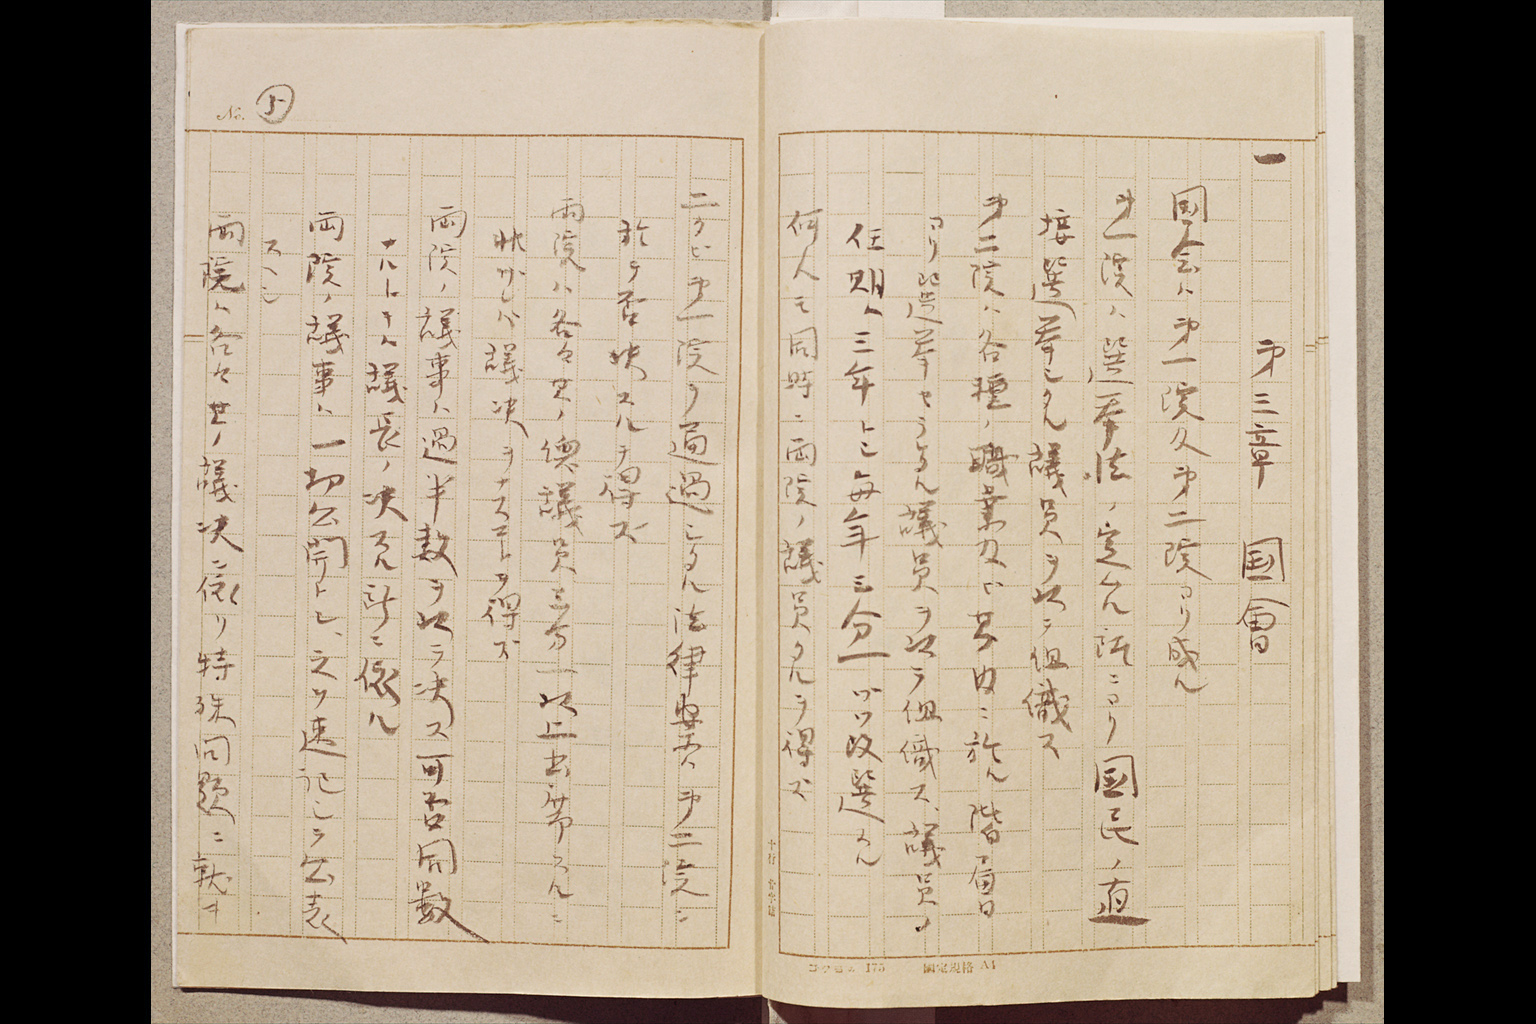 一
第三章 国會
国会ハ第一院及第二院ヨリ成ル
第一院ハ選挙法ノ定ムル所ニヨリ國民ノ直
接選挙シタル議員ヲ以テ組織ス
第二院ハ各種ノ職業及ビ其内ニ於ル階層
ヨリ選挙セラレタル議員ヲ以テ組織ス、議員ノ
任期ハ三年トシ毎年三分一ヅツ改選スル
何人モ同時ニ両院ノ議員タルヲ得ズ
二タビ第一院ヲ通過シタル法律案ハ第二院ニ
於テ否決スルヲ得ズ
両院ハ各々其ノ總議員三分一以上出席スルニ
非ザレバ議決ヲナスコトヲ得ズ
両院ノ議事ハ過半数ヲ以テ決ス可否同數
ナルトキハ議長ノ決スル所ニ依ル
両院ノ議事ハ一切公開トシ、之ヲ速記シテ公表
スベシ
両院ハ各々其ノ議決ニ依リ特殊問題ニ就キ
No.
コクヨ 175 國定規格 A4